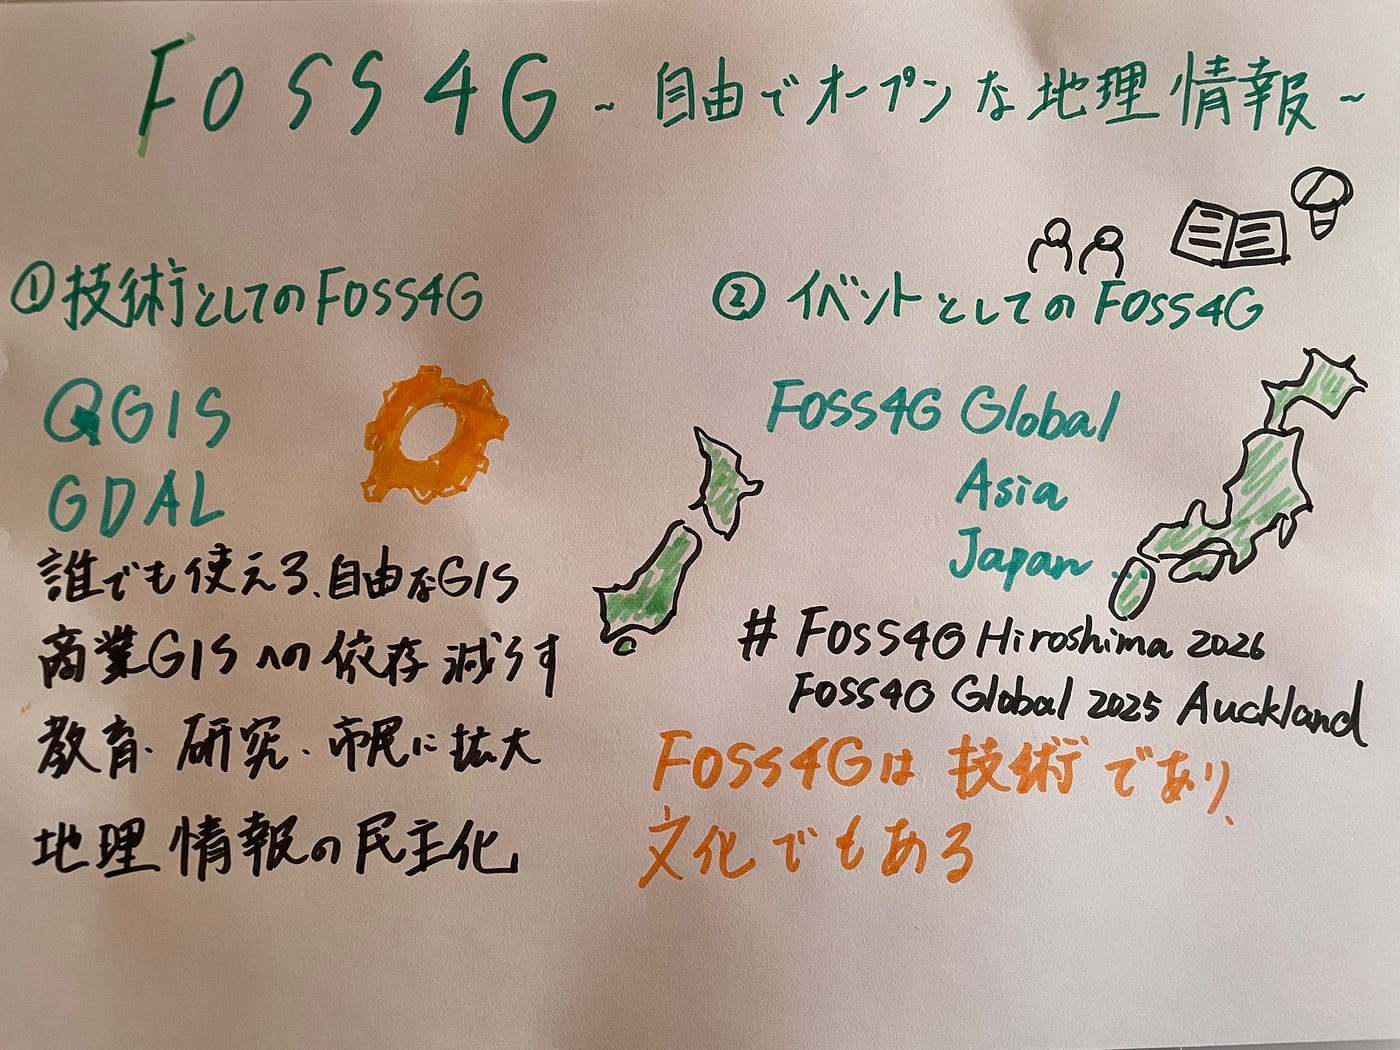 FOSS4G ~ 自由でオープンな地理情報 ~
①技術としてのFOSS4G
QGIS
GDAL
誰でも使える、自由なGIS
商業GISへの依存減らす
教育・研究・市民に拡大
地理情報の民主化
②イベントとしてのFOSS4G
FOSS4G Global
Asia
Japan ...
# FOSS4G Hiroshima 2026
FOSS4G Global 2025 Auckland
FOSS4Gは技術であり、
文化でもある